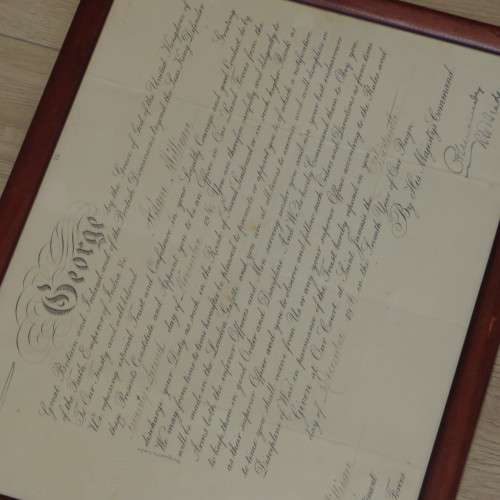 George
by the Grace of God of the United Kingdom of
Great Britain and Ireland and of the British Dominions beyond the Seas King Defender
of the Faith, Emperor of India, &c.
To Our Trusty and well beloved Adam William
Greeting
We, reposing especial Trust and Confidence in your Loyalty, Courage, and good Conduct, do by
these Presents Constitute and Appoint you to be an Officer in Our Land Forces from the
day of November You are therefore carefully and diligently to
discharge your Duty as such in the Rank of or in such higher Rank as
We may from time to time hereafter be pleased to promote or appoint you to, of which a notification
will be made in the London Gazette, and you are at all times to exercise and well discipline in
Arms both the inferior Officers and Men serving under you and use your best endeavours
to keep them in good Order and Discipline. And We do hereby Command them to Obey you
as their superior Officer, and you to observe and follow such Orders and Directions as from time
to time you shall receive from Us, or any your superior Officer, according to the Rules and
Discipline of War, in pursuance of the Trust hereby reposed in you.
Given at Our Court, at Saint James's, the
day of November 191 in the Year of Our Reign
By His Majesty's Command